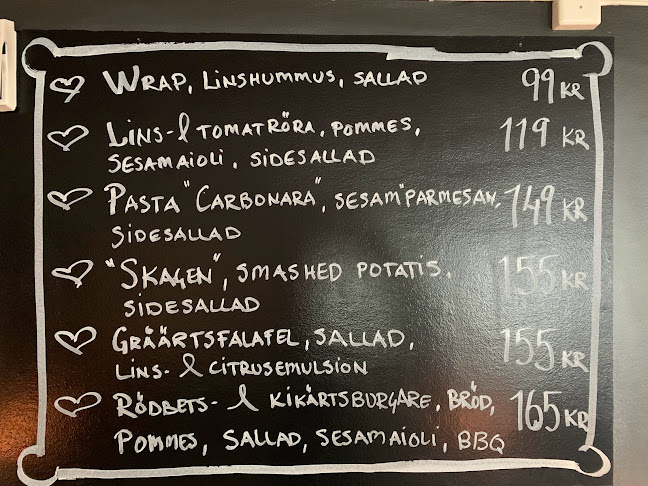 WRAP, LINSHUMMUS, SALLAD 99 KR
LINS- & TOMATRÖRA, POMMES, 119 KR
SESAMAIOLI, SIDESALLAD
PASTA "CARBONARA", SESAM"PARMESAN, 149 KR
SIDESALLAD
"SKAGEN", SMASHED POTATIS. 155 KR
SIDESALLAD
GRÅÄRTSFALAFEL, SALLAD, 155 KR
LINS- & CITRUSEMULSION
RÖDBETS- & KIKÄRTSBURGARE, BRÖD, 165 KR
POMMES, SALLAD, SESAMAIOLI, BBQ